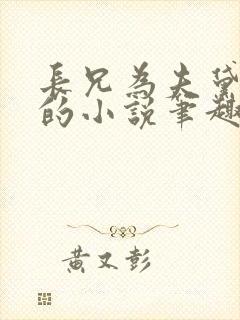 長兄為夫黛
的小說筆趣
黃又彭